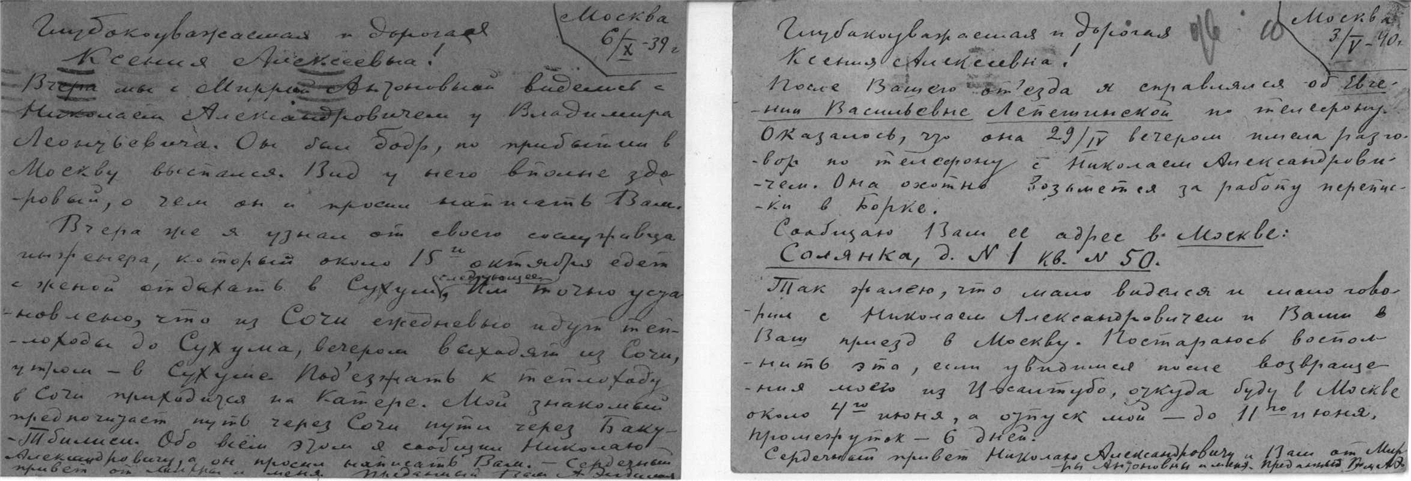 Москва
6/X -39 г
Глубокоуважаемая и дорогая
Ксения Алексеевна!
Вчера мы с Миррой Антоновной виделись с
Николаем Александровичем у Владимира
Леонтьевича. Он был бодр, по прибытии в
Москву выспался. Вид у него вполне здо
-ровый, о чем он и просил написать Вам.
Вчера же я узнал от своего сослуживца
инженера, который около 15го октября едет
с женой отдыхать в Сухум, следующее
Им точно уста
-новлено, что из Сочи ежедневно идут теп-
-лоходы до Сухума, вечером выходят из Сочи,
утром – в Сухуме. Под'езжать к теплоходу
в Сочи приходится на катере. Мой знакомый
предпочитает путь через Сочи пути через Баку-
-Тбилиси. Обо всём этом я сообщил Николаю
Александровичу, а он просил написать Вам. – Сердечный
привет от Мирры и меня. Преданный Вам
Москва
3/V -40 г.
Глубокоуважаемая и дорогая
Ксения Алексеевна!
После Вашего от'езда я справлялся об Евге-
-нии Васильевне Лепешинской по телефону.
Оказалось, что она 29/IV вечером имела разго-
-вор по телефону с Николаем Александрови-
-чем. Она охотно возьмется за работу перепис-
-ки в Борке.
Сообщаю Вам ее адрес в Москве:
Солянка, д. N 1 кв. N 50.
Так жалею, что мало виделся и мало гово-
-рил с Николаем Александровичем и Вами в
Ваш приезд в Москву. Постараюсь воспол-
-нить это, если увидимся после возвраще-
-ния моего из Цхалтубо, откуда буду в Москве
около 4го июня, а отпуск мой – до 11го июня.
Промежуток – 6 дней.
Сердечный привет Николаю Александровичу и Вам от Мир-
ры Антоновны и меня. Преданный Вам